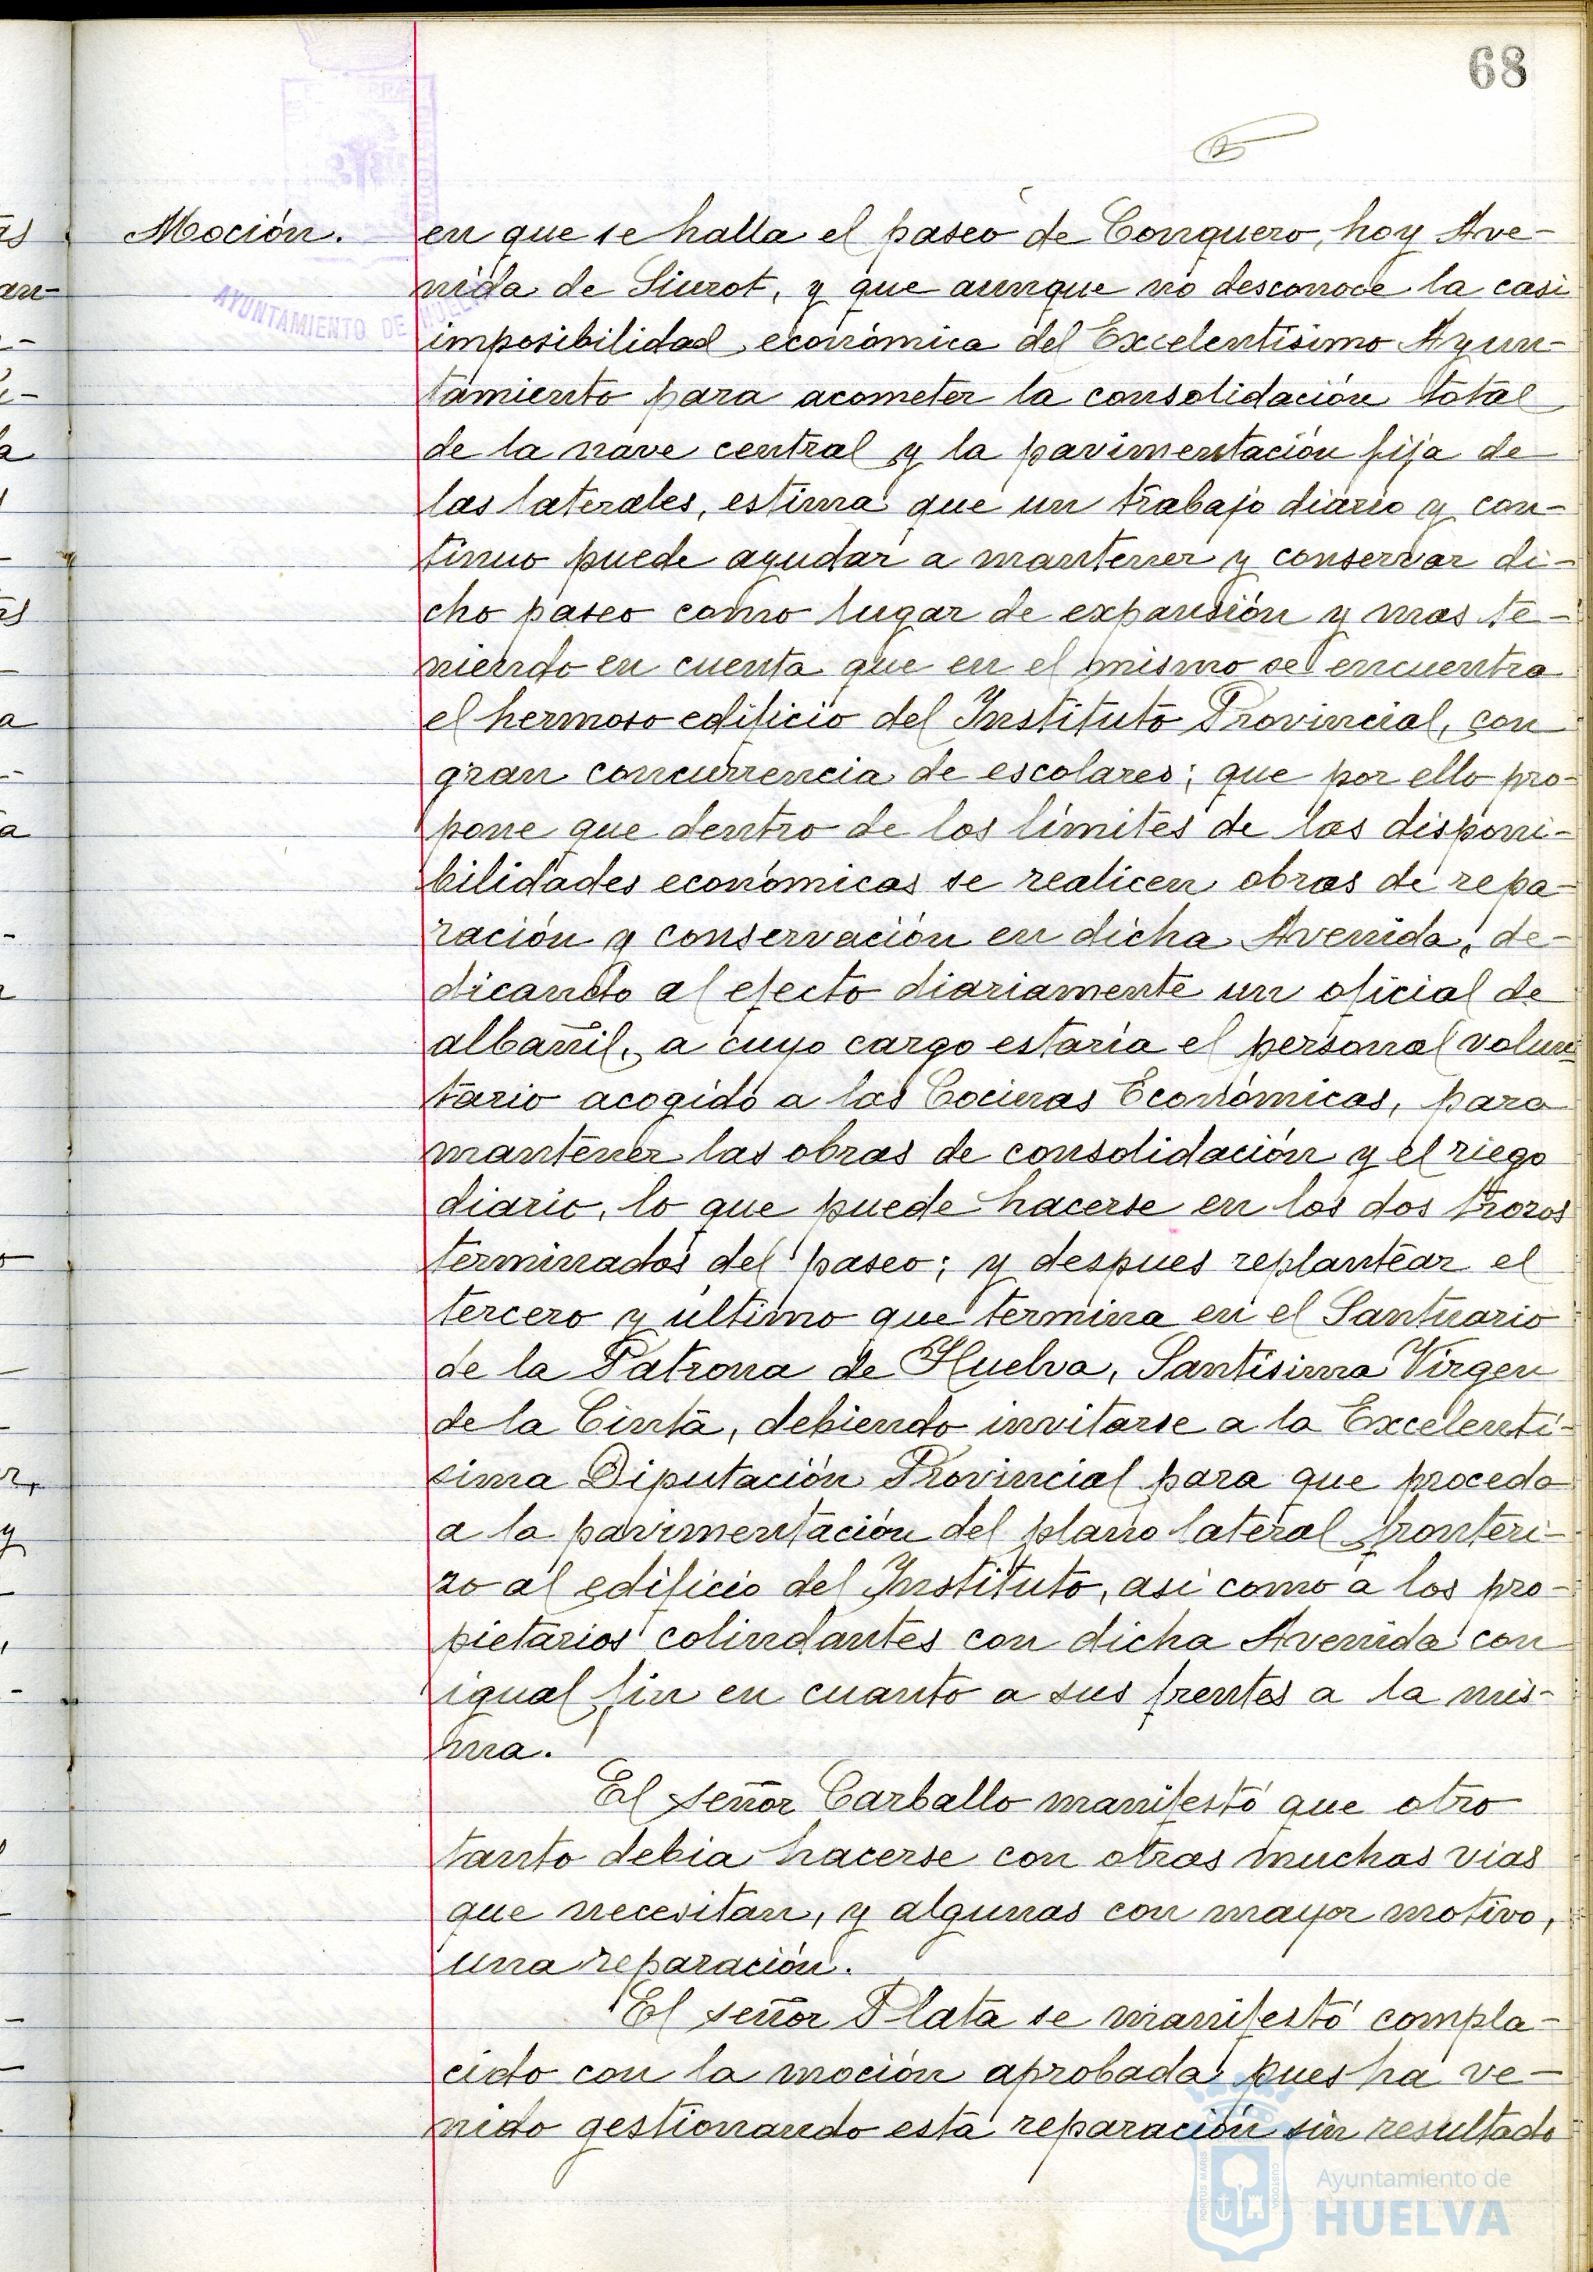 68
Moción.
en que se halla el paseo de Conquero, hoy Ave-
nida de Siurot, y que aunque no desconoce la casi
imposibilidad económica del Excelentísimo Ayun-
tamiento para acometer la consolidación total
de la nave central y la pavimentación fija de
las laterales, estima que un trabajo diario y con-
tinuo puede ayudar a mantener y conservar di-
cho paseo como lugar de expansión y mas te-
niendo en cuenta que en el mismo se encuentra
el hermoso edificio del Instituto Provincial, con
gran concurrencia de escolares; que por ello pro-
pone que dentro de los límites de las disponi-
bilidades económicas se realicen obras de repa-
ración y conservación en dicha Avenida, de-
dicando al efecto diariamente un oficial de
albañil, a cuyo cargo estaría el personal volun-
tario acogido a las Cocinas Económicas, para
mantener las obras de consolidación y el riego
diario, lo que puede hacerse en los dos trozos
terminados del paseo; y despues replantear el
tercero y último que termina en el Santuario
de la Patrona de Huelva, Santísima Virgen
de la Cinta, debiendo invitarse a la Excelentí-
sima Diputación Provincial para que proceda
a la pavimentación del plano lateral fronteri-
zo al edificio del Instituto, así como a los pro-
pietarios colindantes con dicha Avenida con
igual fin en cuanto a sus frentes a la mis-
ma.
El señor Carballo manifestó que otro
tanto debia hacerse con otras muchas vias
que necesitan, y algunas con mayor motivo,
una reparación.
El señor Plata se manifestó compla-
cido con la moción aprobada pues ha ve-
nido gestionando esta reparación sin resultado
AYUNTAMIENTO DE HUELVA
PORTUS MARIS
CUSTODIA
Ayuntamiento de
HUELVA